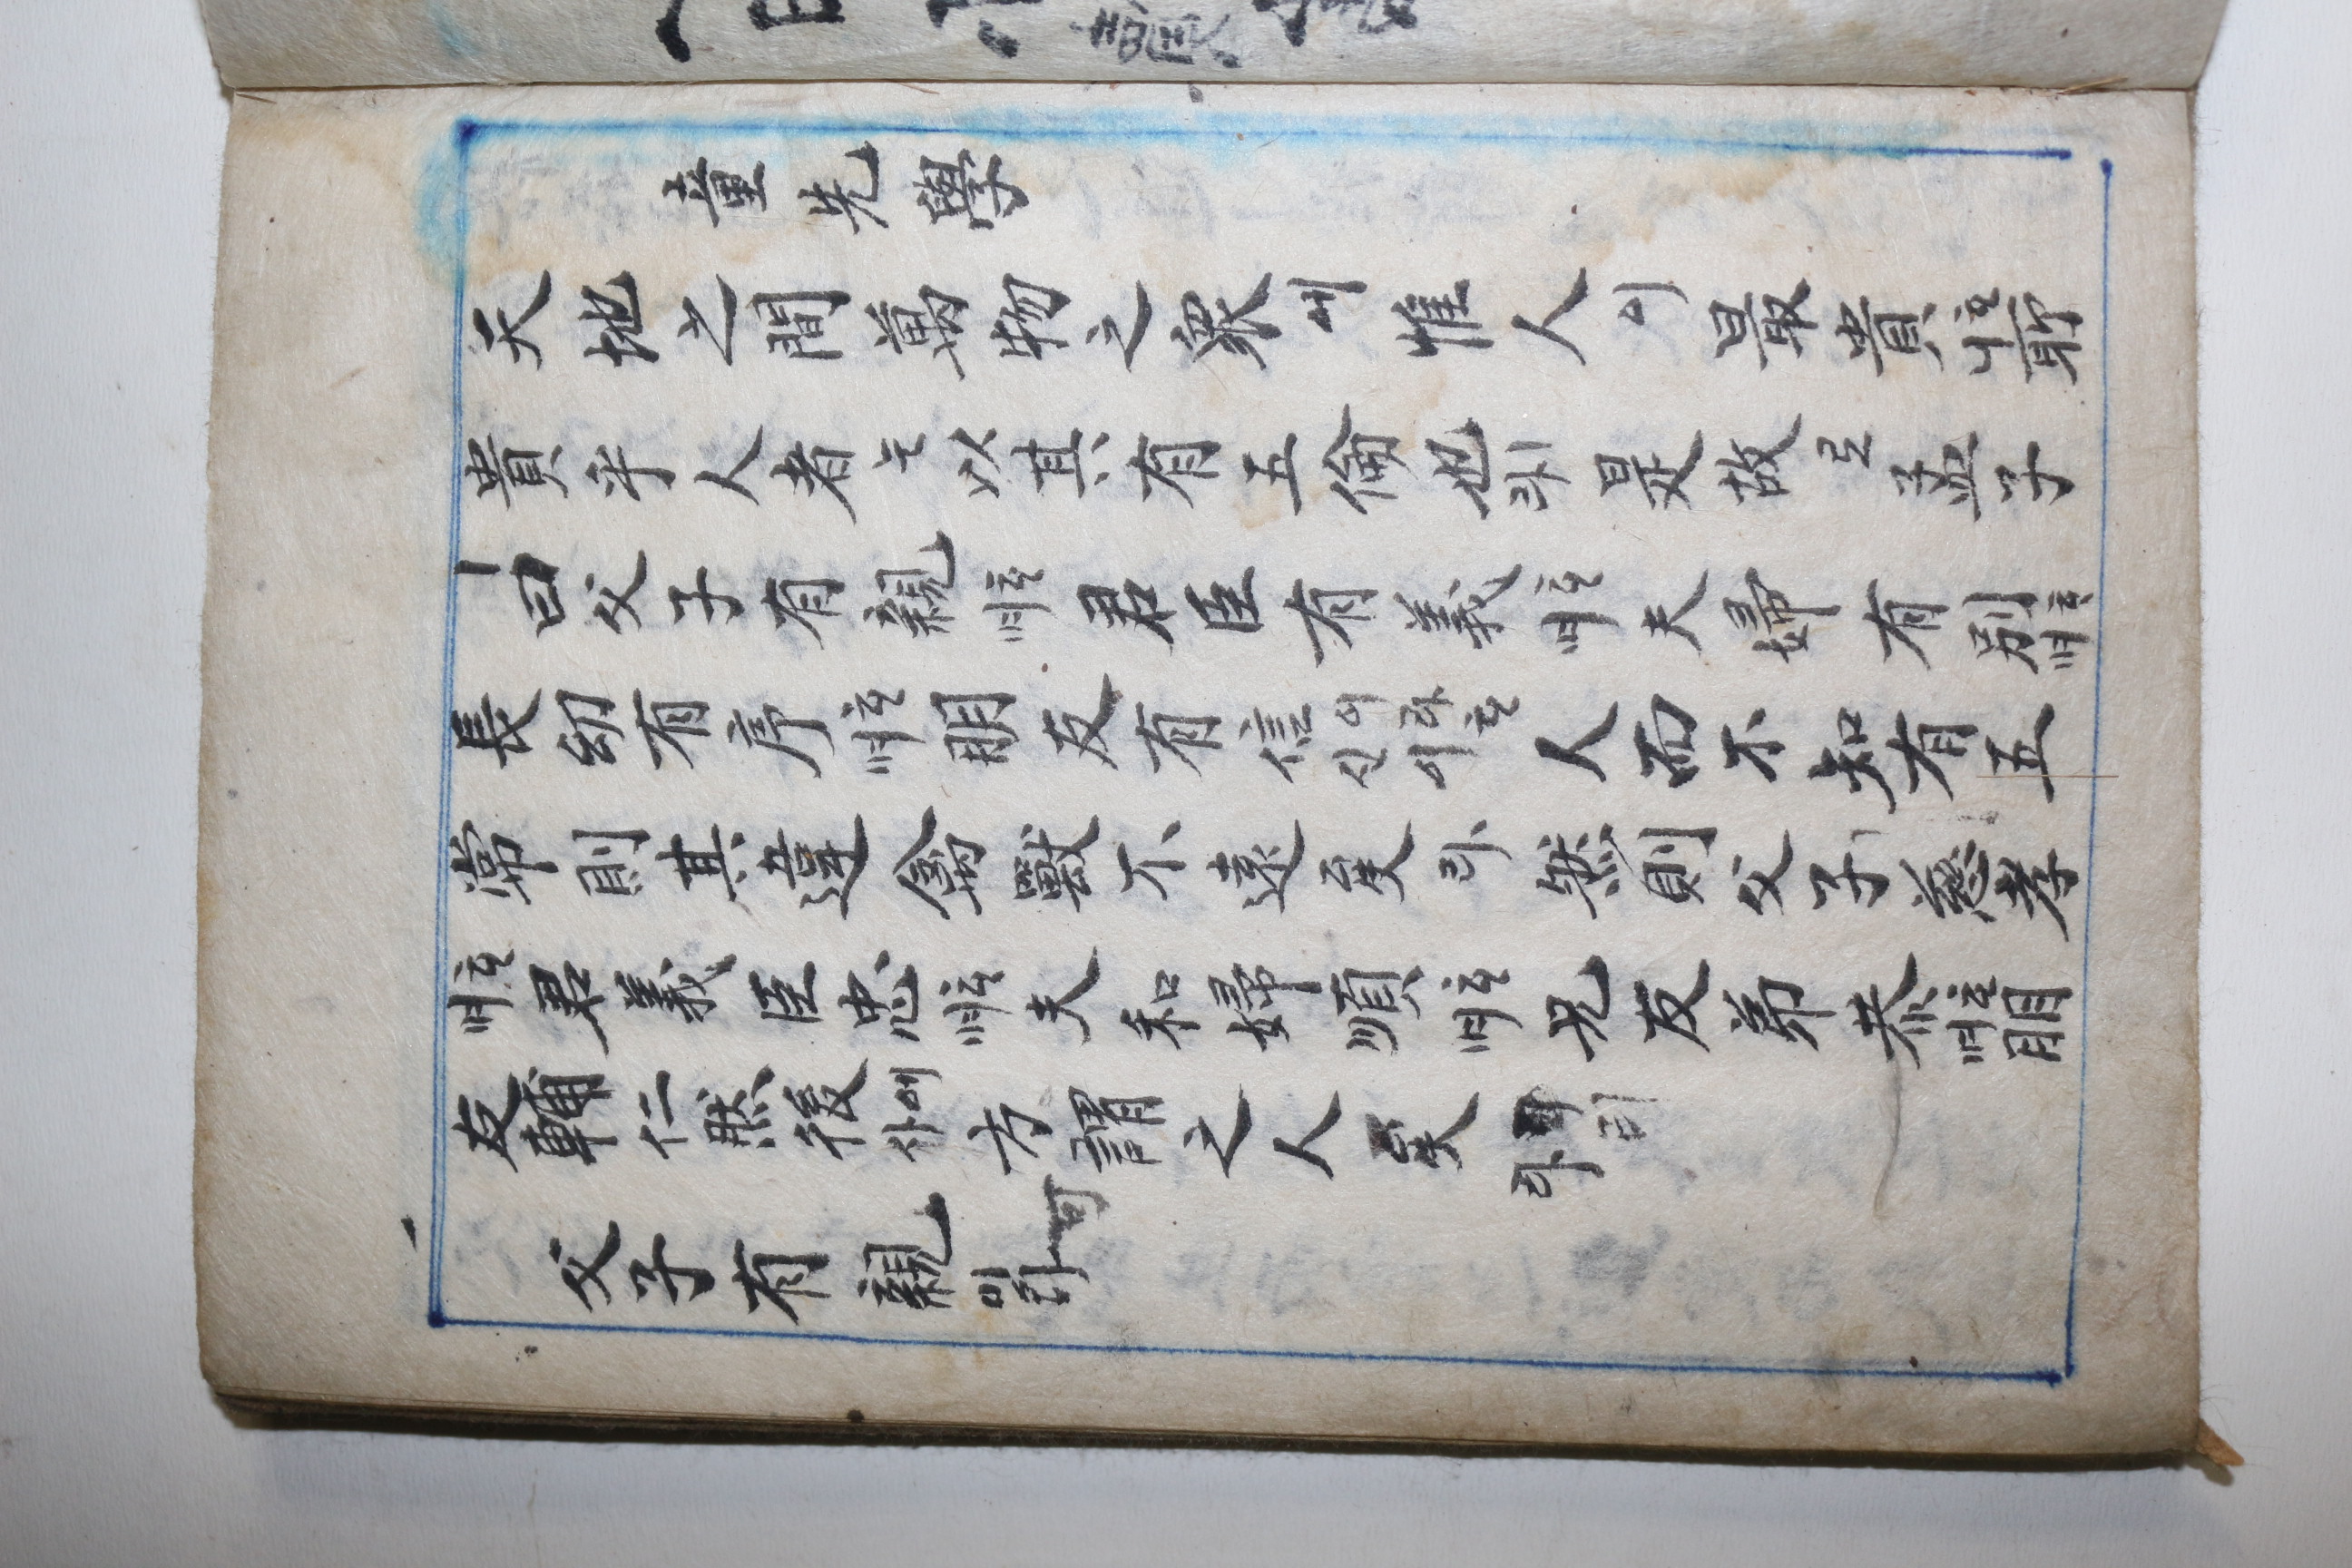 童先學
天地之間萬物之衆에惟人이最貴ᄒᆞ니所
貴乎人者는以其有五倫也이라是故로孟子
曰父子有親ᄒᆞ며君臣有義ᄒᆞ며夫婦有別ᄒᆞ며
長幼有序ᄒᆞ며朋友有信이라ᄒᆞ신이人而不知有五
常則其違禽獸不遠矣라然則父子慈孝
ᄒᆞ며君義臣忠ᄒᆞ며夫和婦順ᄒᆞ며兄友弟恭ᄒᆞ며朋
友輔仁然後에사方謂之人矣라
父子有親이라